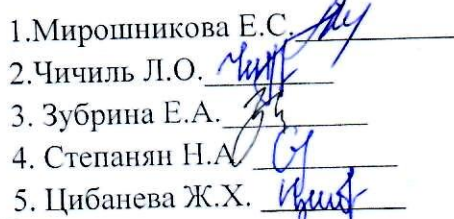 1.Мирошникова Е.С.
2.Чичиль Л.О.
3. Зубрина Е.А.
4. Степанян Н.А
5. Цибанева Ж.Х.